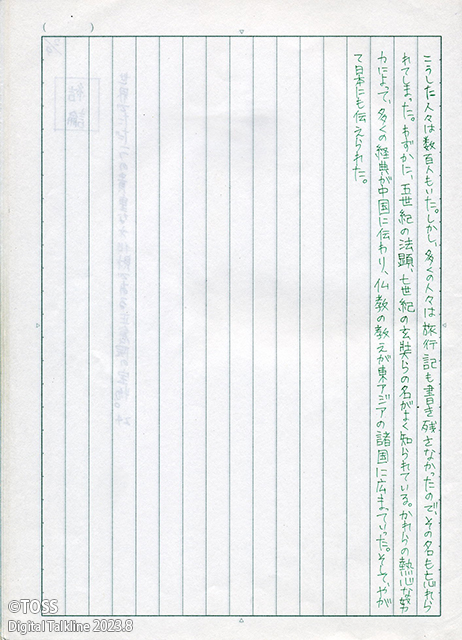 こうした人々は数百人もいた。しかし、多くの人々は旅行記も書き残さなかったので、その名も忘れら
れてしまった。わずかに、五世紀の法顕、七世紀の玄奘らの名がよく知られている。かれらの熱心な努
力によって、多くの経典が中国に伝わり、仏教の教えが東アジアの諸国に広まっていった。そして、やが
て日本にも伝えられた。
©TOSS
Digital Talkline 2023.8